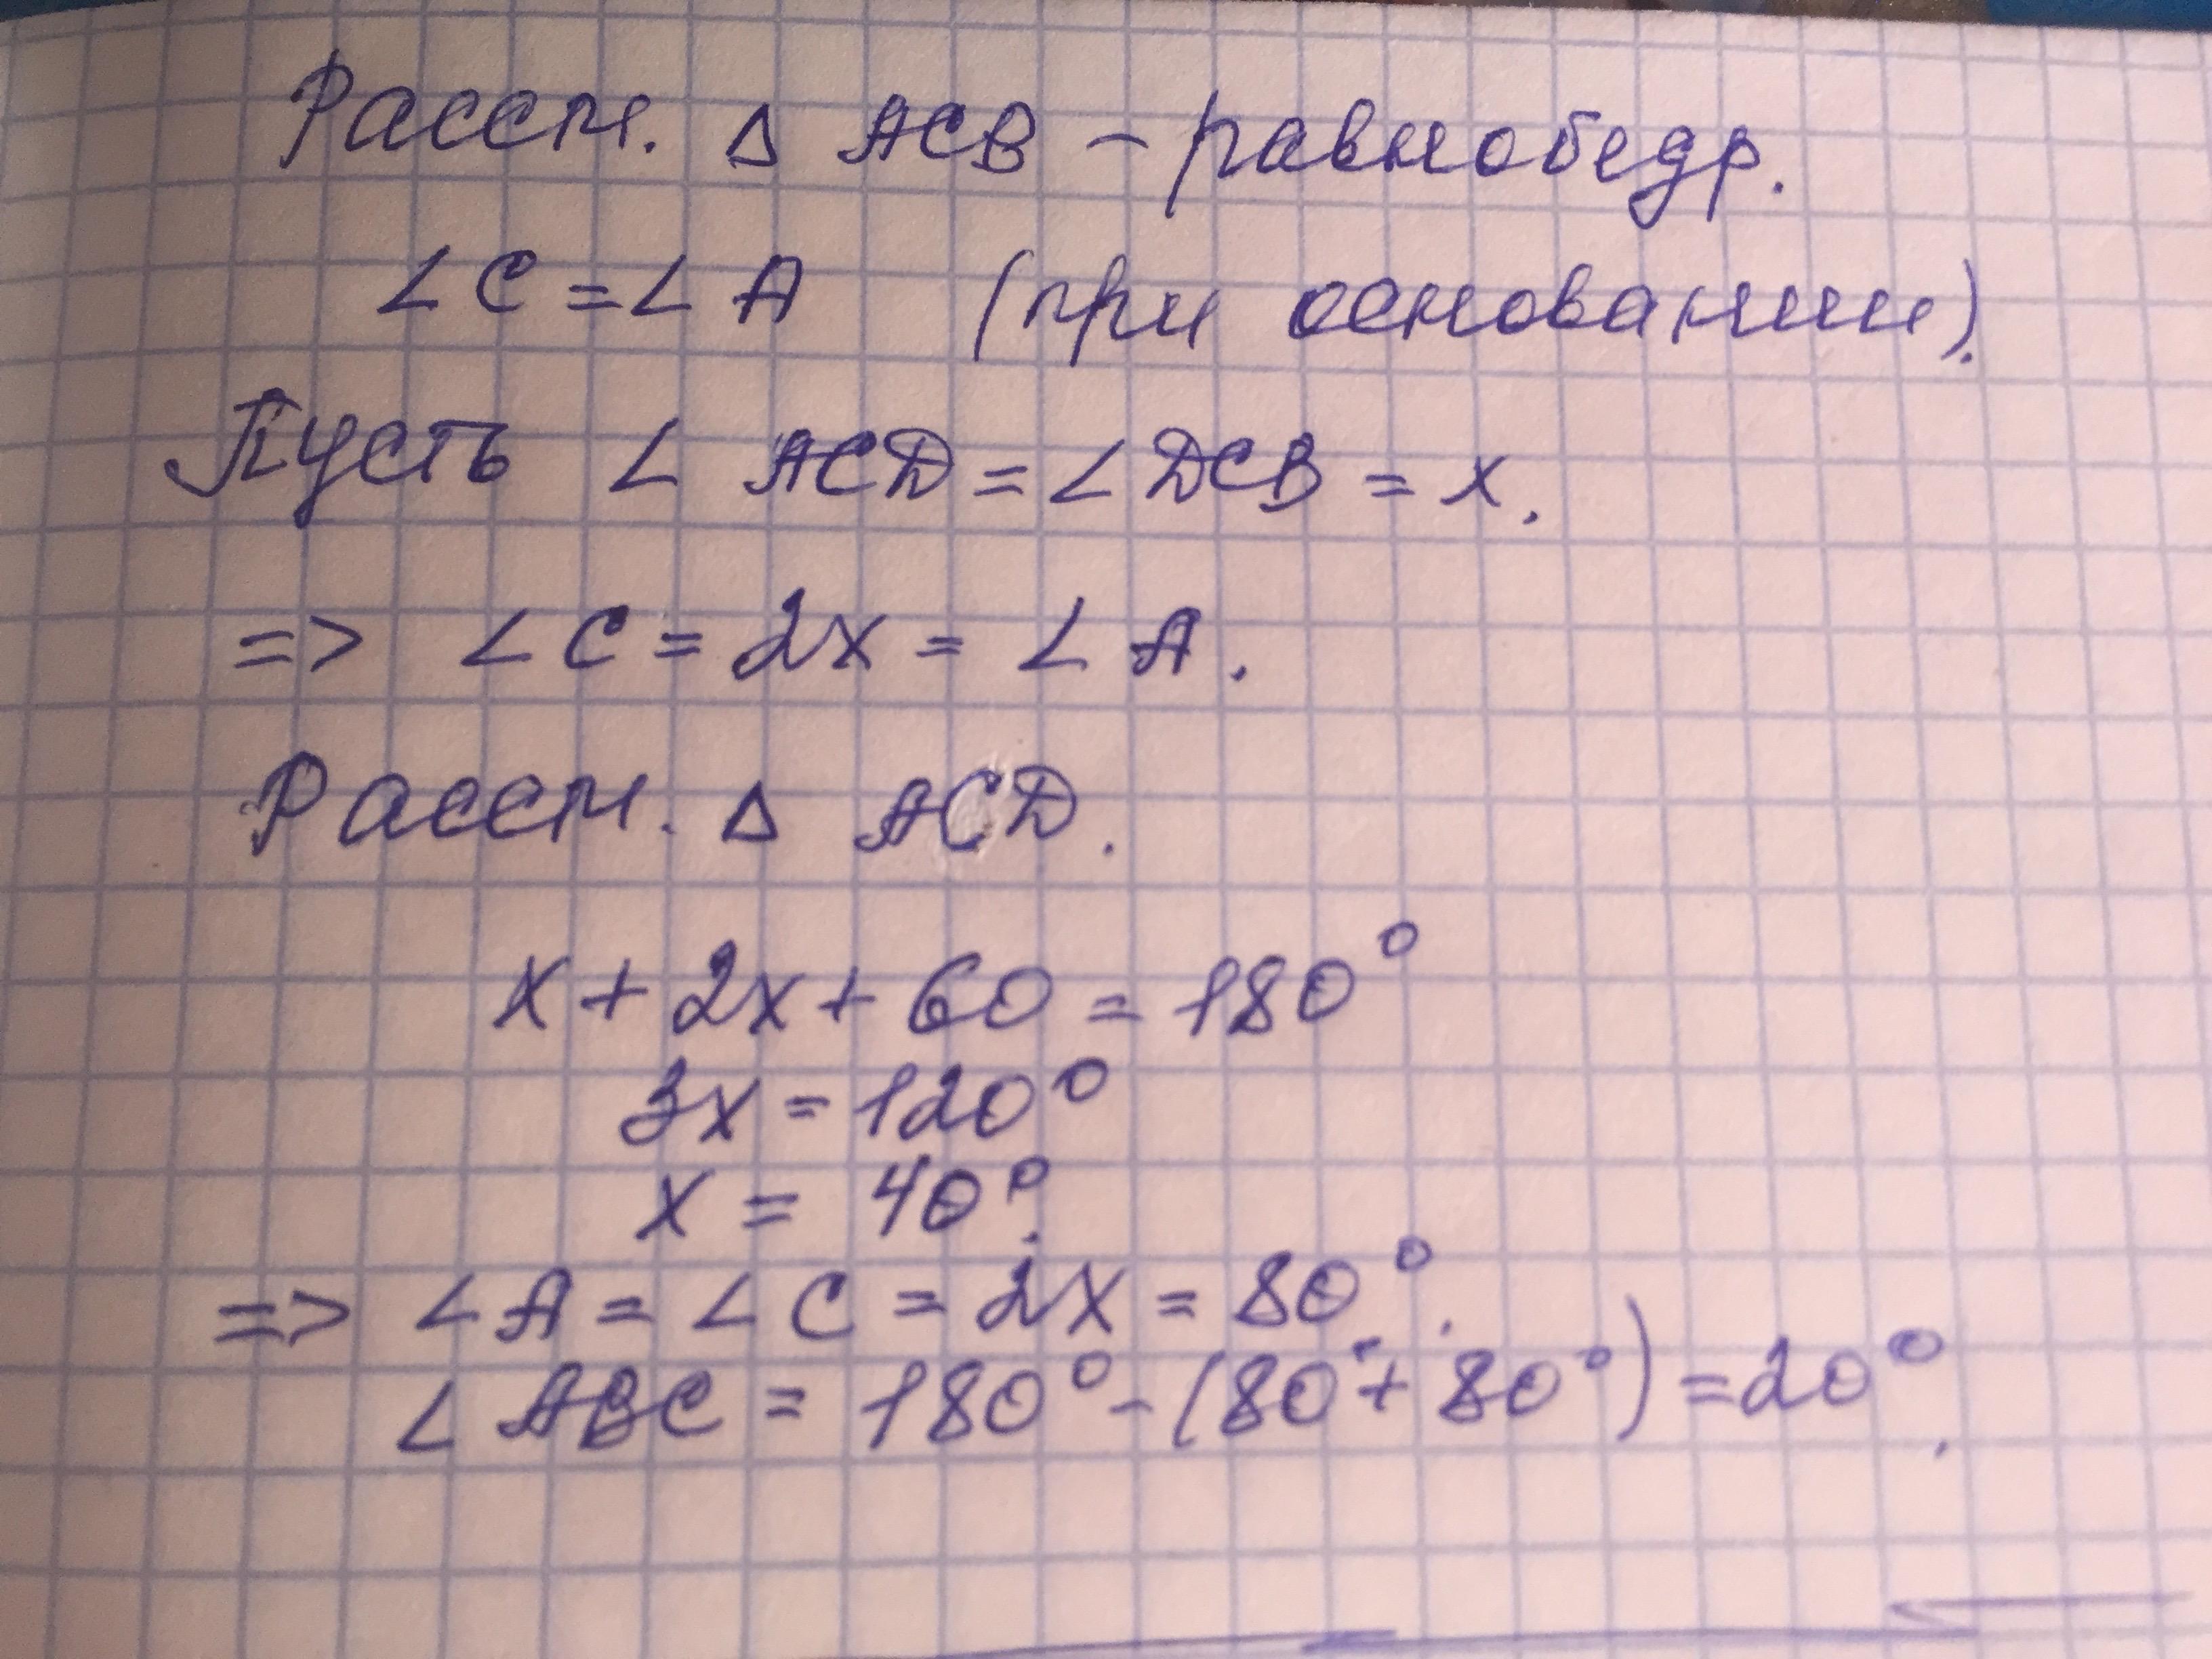 Рассм. Δ ACB - равнобедр.
∠C = ∠A (при основании).
Пусть ∠ACD = ∠DCB = x.
=> ∠C = 2x = ∠A.
Рассм. Δ ACD.
x + 2x + 60 = 180°
3x = 120°
x = 40°.
=> ∠A = ∠C = 2x = 80°.
∠ABC = 180° - (80° + 80°) = 20°.